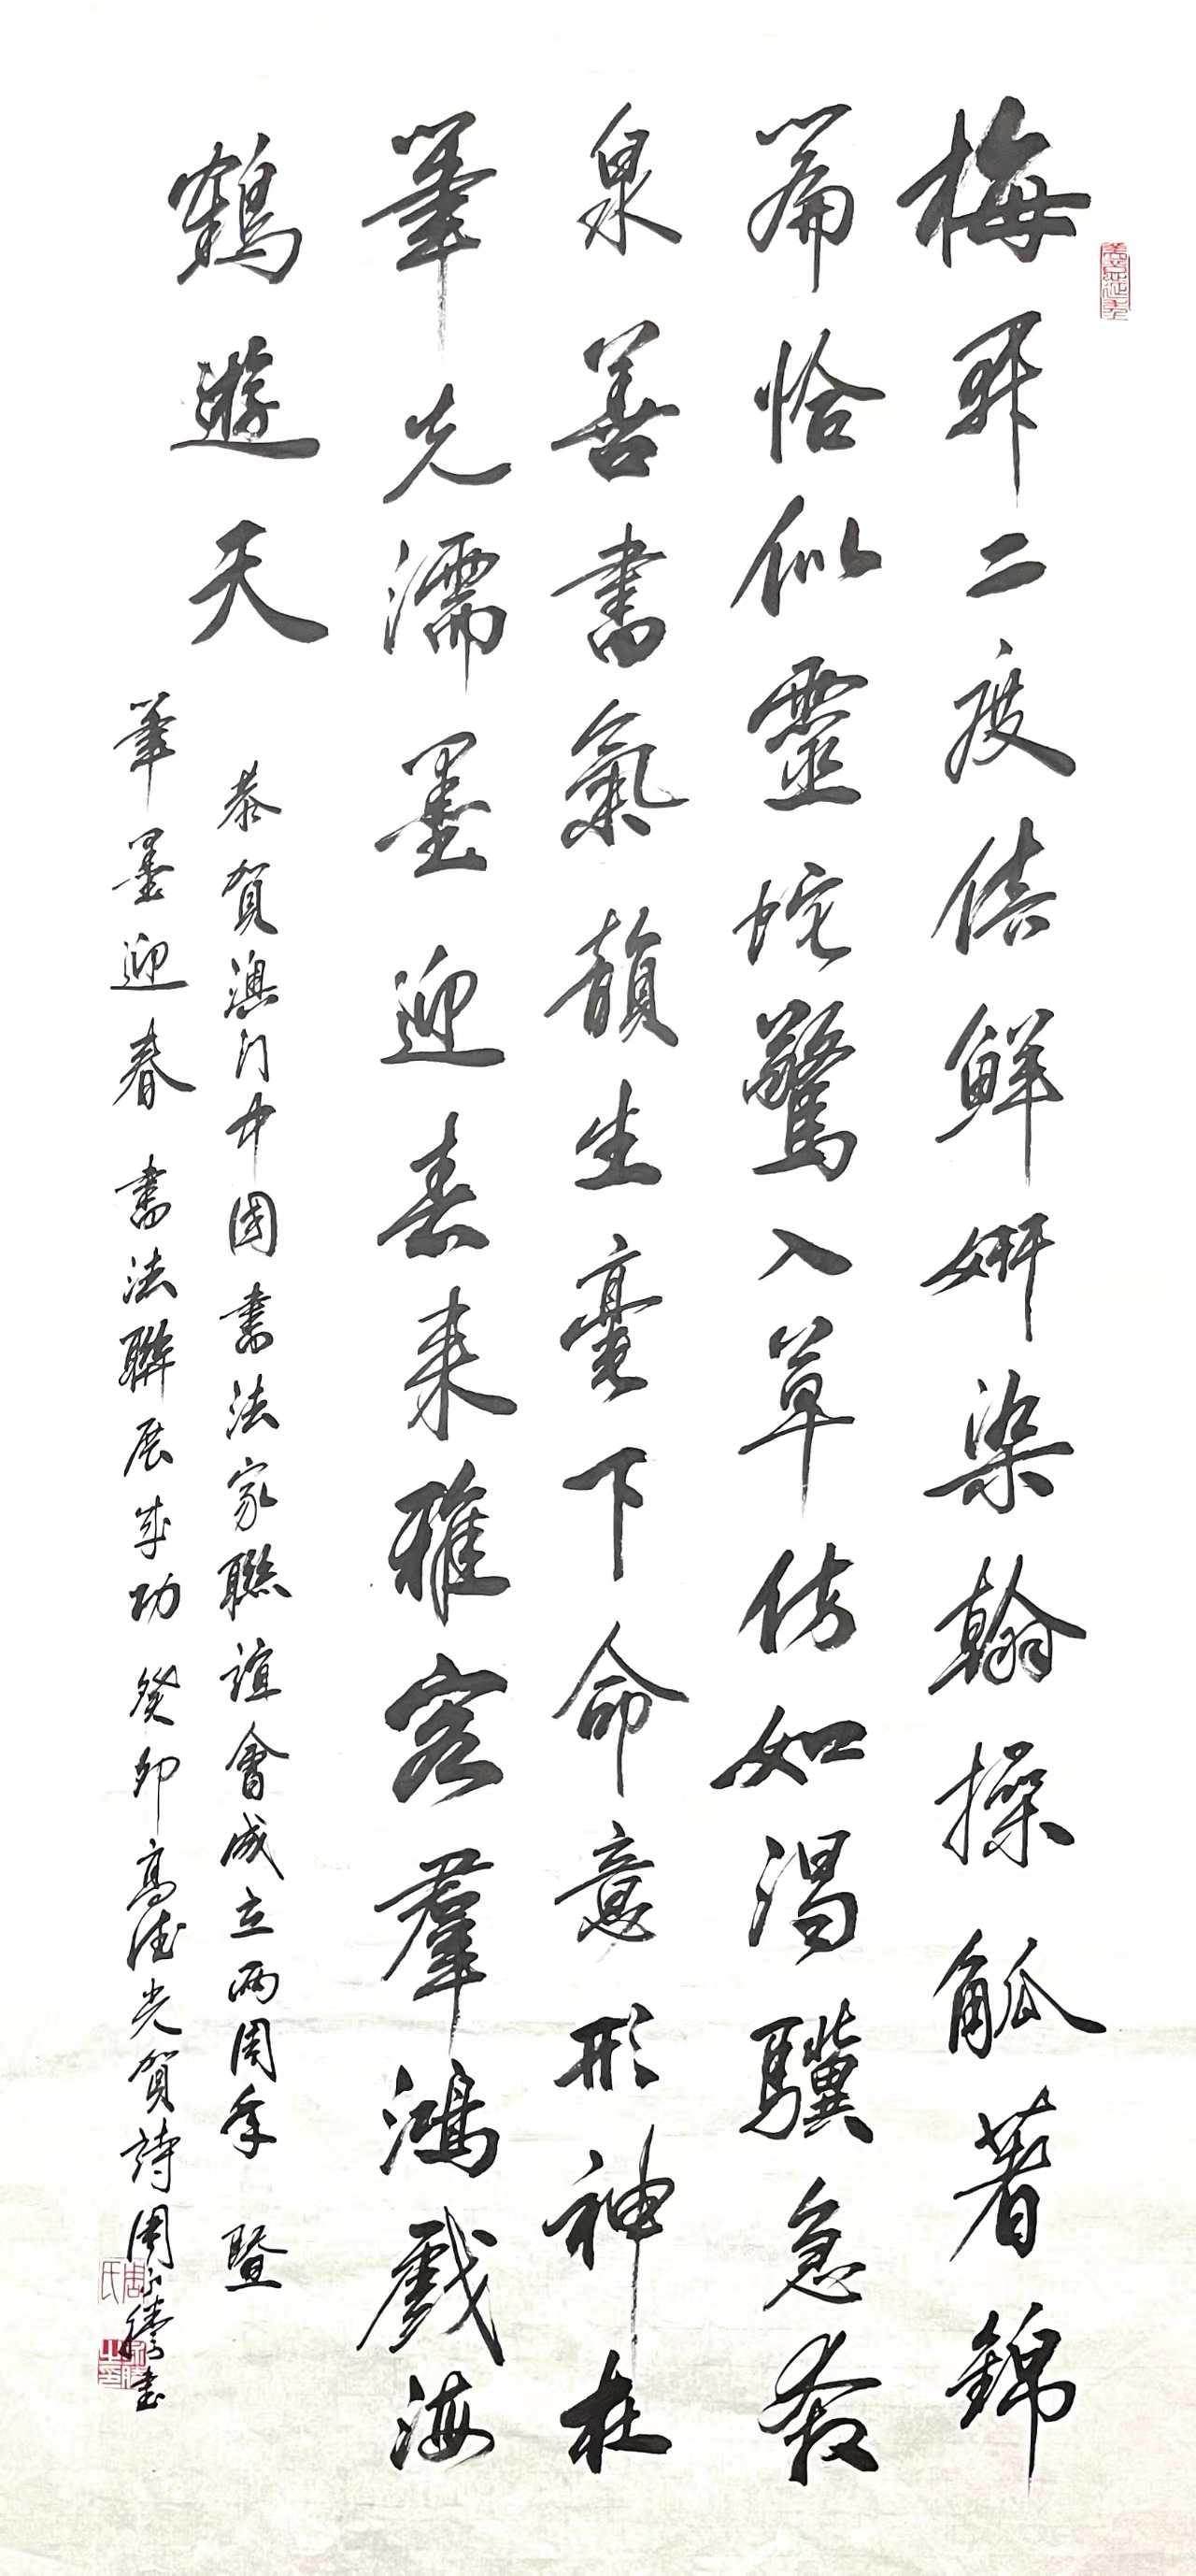 梅开二度倍鮮妍染翰操觚著錦
篇恰似靈蛇驚入草仿如渴驥急奔
泉善書氣韻生毫下命意形神在
筆先濡墨迎春來雅客羣鴻戲海
鶴遊天
恭賀澳门中國書法家聯誼會成立兩周年暨
筆墨迎春書法聯展成功 癸卯高德光賀詩周 書